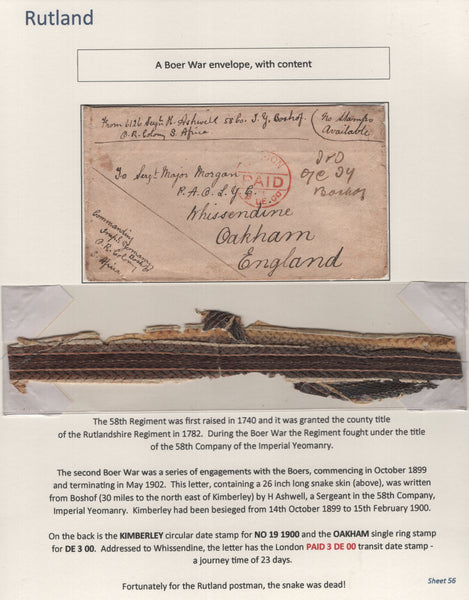 Rutland
A Boer War envelope, with content
From 6126 Sergt H. Ashwell 58 Co. I. Y. Boshof
O. R. Colony S. Africa
(No Stamps
Available)
To Sergt Major Morgan
P.A.O.L.Y.C.
Whissendine
Oakham
England
PAID
DE 00
O/C IY
Boshof
Commanding
Boshof
O. R. Colony
S. Africa
The 58th Regiment was first raised in 1740 and it was granted the county title
of the Rutlandshire Regiment in 1782. During the Boer War the Regiment fought under the title
of the 58th Company of the Imperial Yeomanry.
The second Boer War was a series of engagements with the Boers, commencing in October 1899
and terminating in May 1902. This letter, containing a 26 inch long snake skin (above), was written
from Boshof (30 miles to the north east of Kimberley) by H Ashwell, a Sergeant in the 58th Company,
Imperial Yeomanry. Kimberley had been besieged from 14th October 1899 to 15th February 1900.
On the back is the KIMBERLEY circular date stamp for NO 19 1900 and the OAKHAM single ring stamp
for DE 3 00. Addressed to Whissendine, the letter has the London PAID 3 DE 00 transit date stamp -
a journey time of 23 days.
Fortunately for the Rutland postman, the snake was dead!
Sheet 56